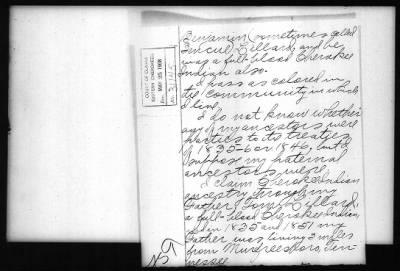 Benjamin (sometimes called
Lillard, and he
was a full-blood Cherokee
Indian also.
I pass as colored in
the community in which
I live.
I do not know whether
any of my ancestors were
parties to the treaties
of 1835-6 or 1846, but I
suppose my paternal
ancestors were.
I claim Cherokee Indian
ancestry through my
father, Lillard,
a full-blood Cherokee Indian,
in 1835 and 1851 my
father was living 3 miles
from Murfreesboro, Ten-
nessee
COURT OF CLAIMS
EASTERN CHEROKEES
MAY 25 1908
No.